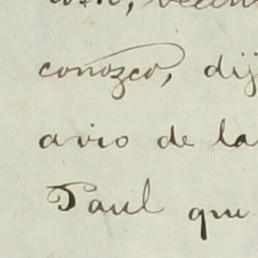 conozco, dij
avio de la
Paul que